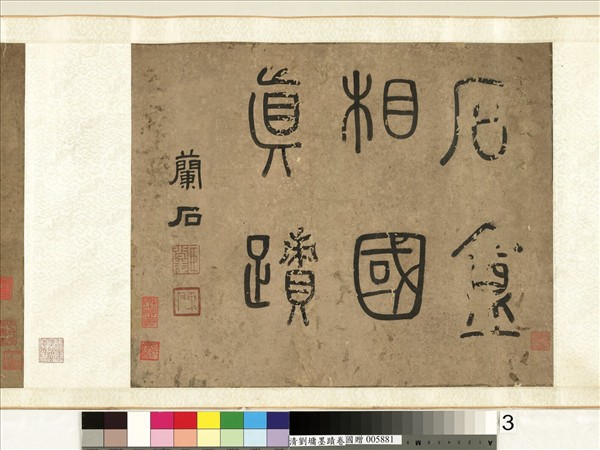 石盦
相國
眞蹟
蘭石
清劉墉墨蹟卷國贈 005881
3